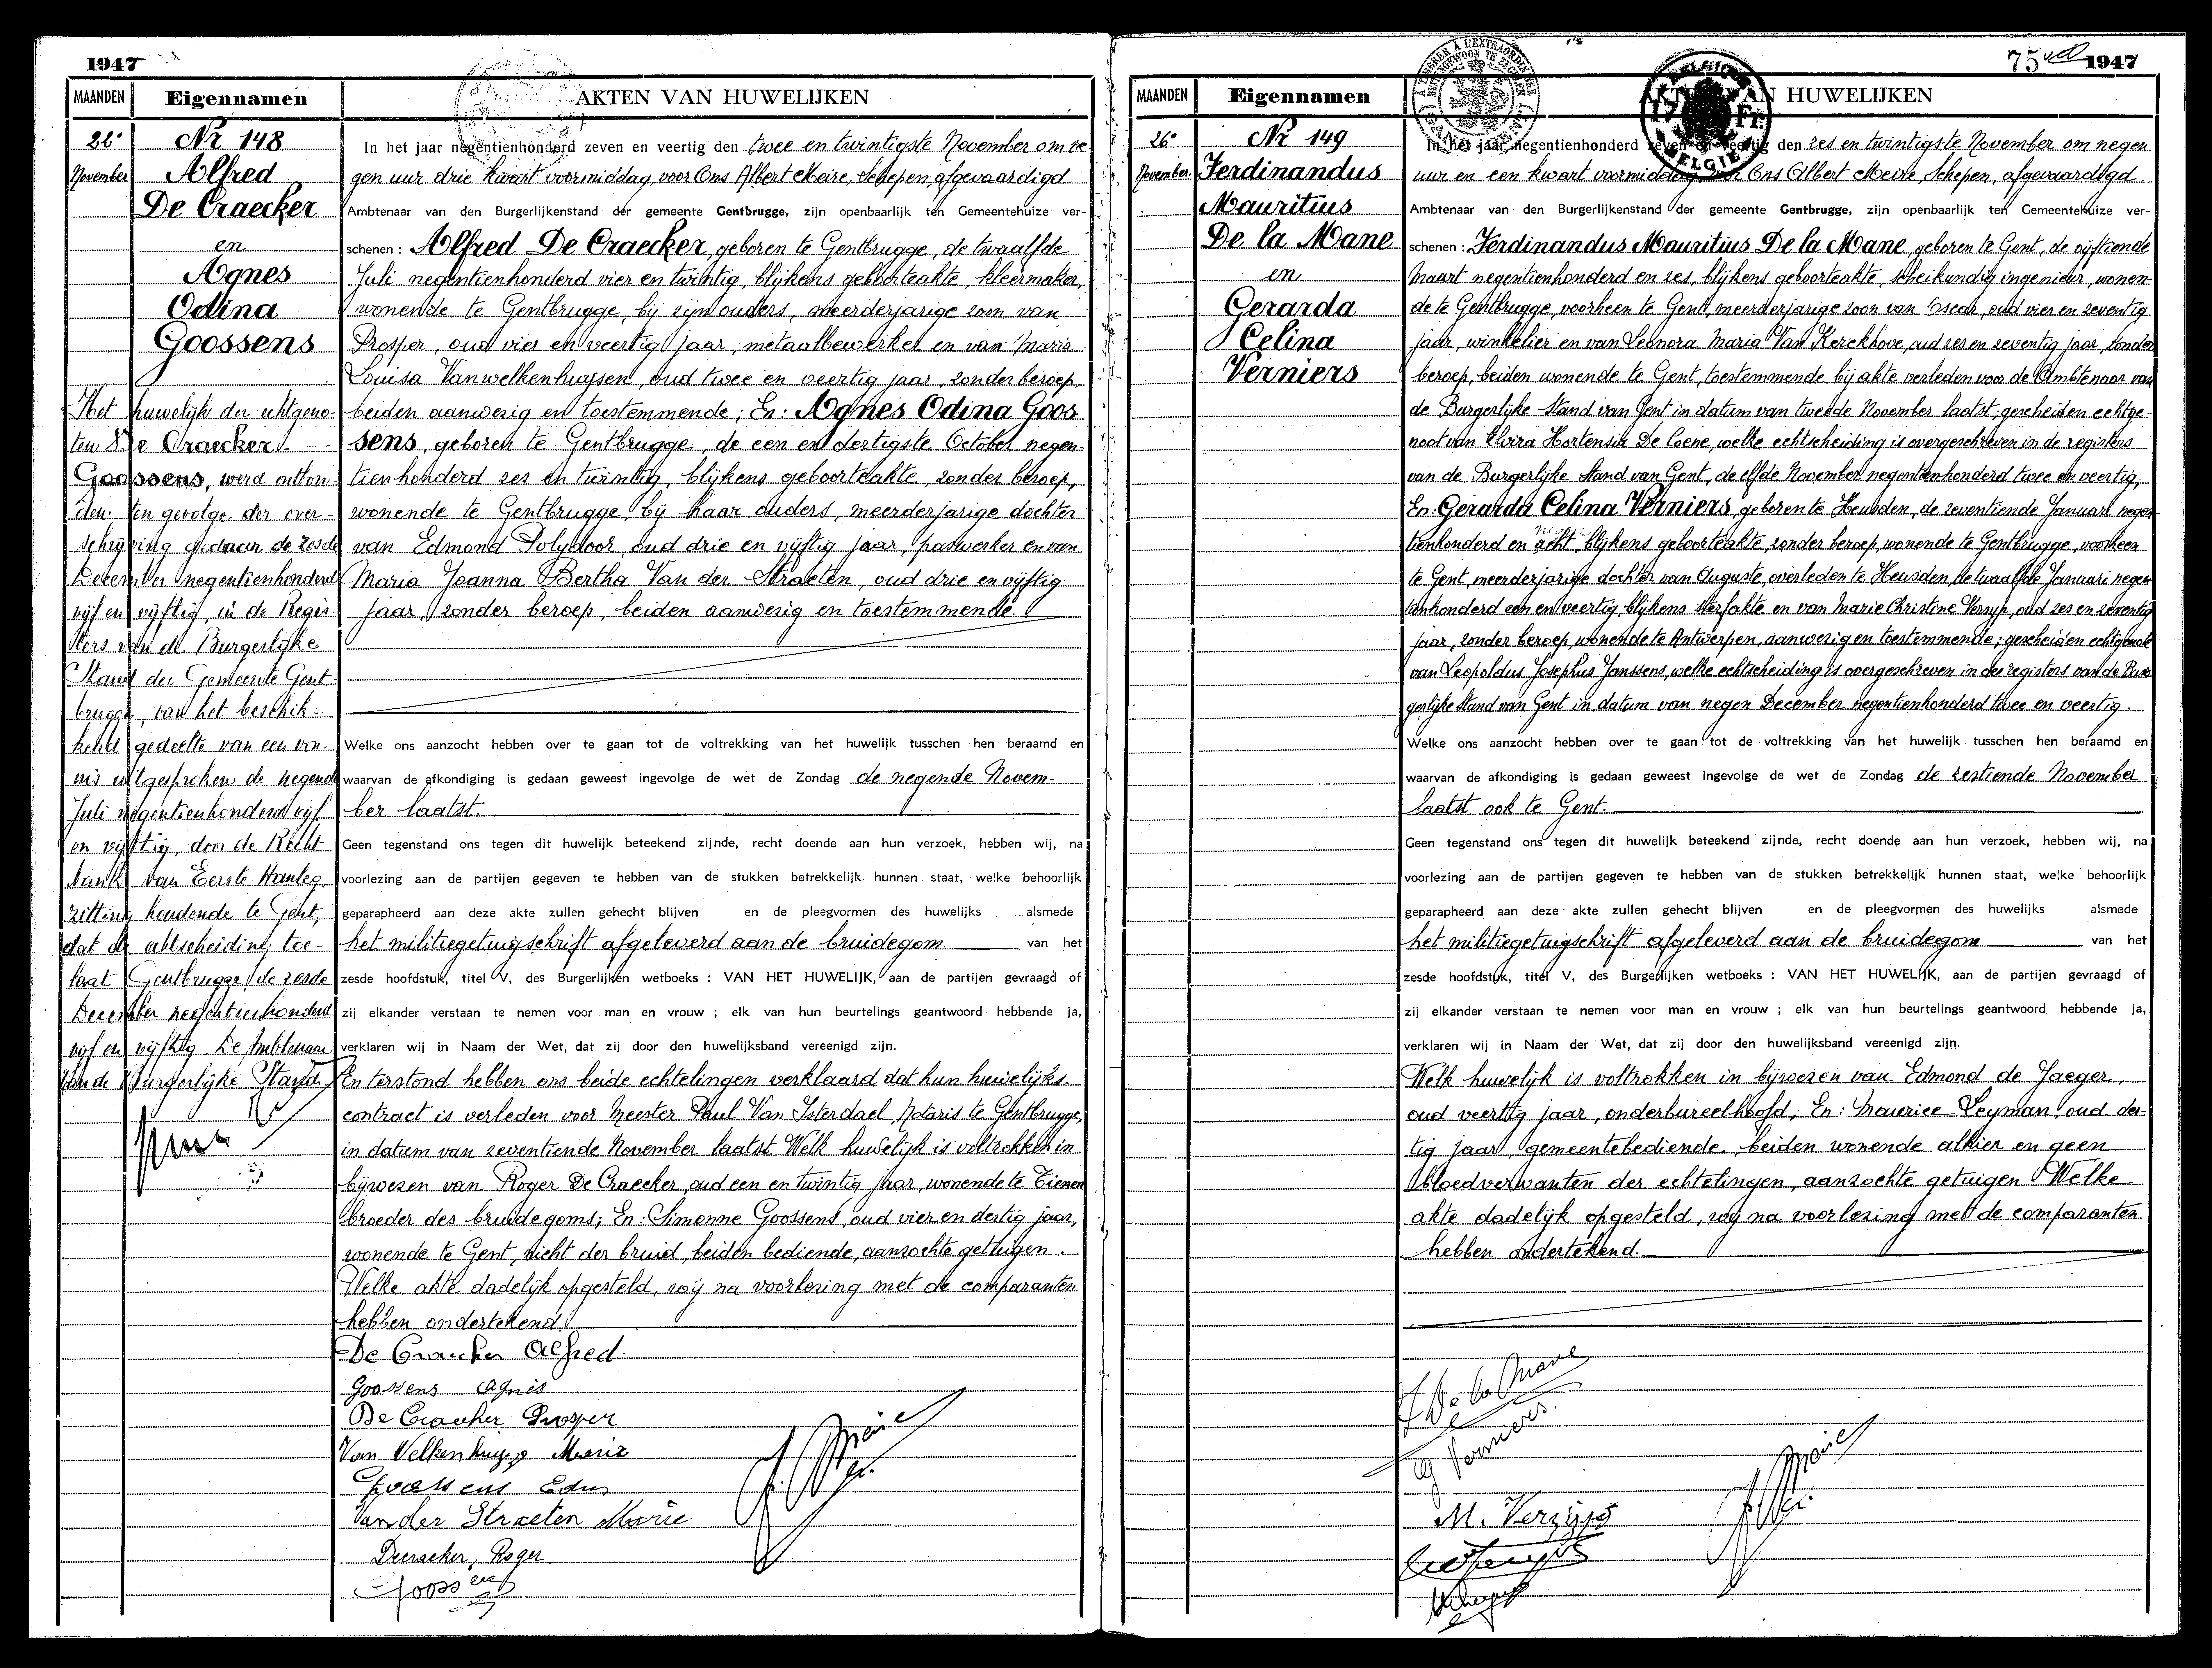 1947
MAANDEN Eigennamen AKTEN VAN HUWELIJKEN
22e Nr 148
November Alfred
De Craecker
en
Agnes
Odina
Goossens
Het huwelijk der echtgeno-
ten De Craecker -
Goossens, werd ontbon-
den ten gevolge der over-
schrijving gedaan de zesde
December negentienhonderd
vijf en vijftig, in de Regis-
ters van de Burgerlijke
Stand der Gemeente Gent
brugge, van het beschik-
kend gedeelte van een von-
nis uitgesproken de negende
Juli negentienhonderd vijf
en vijftig, door de Recht
bank van Eerste Aanleg,
zitting houdende te Gent,
dat de echtscheiding toe-
laat Gentbrugge, de zesde
December negentienhonderd
vijf en vijftig De Ambtenaar
van de Burgerlijke Stand
In het jaar negentienhonderd zeven en veertig den twee en twintigste November om ne
gen uur drie kwart voormiddag, voor Ons Albert Meire, Schepen, afgevaardigd
Ambtenaar van den Burgerlijkenstand der gemeente Gentbrugge, zijn openbaarlijk ten Gemeentehuize ver-
schenen : Alfred De Craecker, geboren te Gentbrugge, de twaalfde
Juli negentienhonderd vier en twintig, blijkens geboorteakte, kleermaker,
wonende te Gentbrugge, bij zijn ouders, meerderjarige zoon van
Prosper, oud vier en veertig jaar, metaalbewerker en van Maria
Louisa Vanwelkenhuysen, oud twee en veertig jaar, zonder beroep,
beiden aanwezig en toestemmende; En: Agnes Odina Goos
sens, geboren te Gentbrugge, de een en dertigste October negen-
tienhonderd zes en twintig, blijkens geboorteakte, zonder beroep,
wonende te Gentbrugge, bij haar ouders, meerderjarige dochter
van Edmond Polydoor, oud drie en vijftig jaar, paswerker en van
Maria Joanna Bertha Van der Straeten, oud drie en vijftig
jaar, zonder beroep, beiden aanwezig en toestemmende.
Welke ons aanzocht hebben over te gaan tot de voltrekking van het huwelijk tusschen hen beraamd en
waarvan de afkondiging is gedaan geweest ingevolge de wet de Zondag de negende Novem-
ber laatst.
Geen tegenstand ons tegen dit huwelijk beteekend zijnde, recht doende aan hun verzoek, hebben wij, na
voorlezing aan de partijen gegeven te hebben van de stukken betrekkelijk hunnen staat, welke behoorlijk
geparapheerd aan deze akte zullen gehecht blijven en de pleegvormen des huwelijks alsmede
het militiegetuigschrift afgeleverd aan de bruidegom van het
zesde hoofdstuk, titel V, des Burgerlijken wetboeks : VAN HET HUWELIJK, aan de partijen gevraagd of
zij elkander verstaan te nemen voor man en vrouw ; elk van hun beurtelings geantwoord hebbende ja,
verklaren wij in Naam der Wet, dat zij door den huwelijksband vereenigd zijn.
En terstond hebben ons beide echtelingen verklaard dat hun huwelijks-
contract is verleden voor Meester Paul Van Isterdael, Notaris te Gentbrugge,
in datum van zeventiende November laatst. Welk huwelijk is voltrokken in
bijwezen van Roger De Craecker, oud een en twintig jaar, wonende te Tienen
broeder des bruidegoms; En: Simonne Goossens, oud vier en dertig jaar,
wonende te Gent, nicht der bruid, beiden bediende, aanzochte getuigen.
Welke akte dadelijk opgesteld, wij na voorlezing met de comparanten
hebben ondertekend.
De Craecker Alfred.
Goossens Agnes
De Craecker Prosper
Van Welkenhuysen Maria
Goossens Edm
Van der Straeten Marie
Decraecker, Roger
Goossens
A. Meire
75 1947
MAANDEN Eigennamen AKTEN VAN HUWELIJKEN
TIMBRER A L'EXTRAORDINAIRE
BUITENGEWOON TE ZEGELEN
GAND GENT
BELGIQUE
BELGIE
26e Nr 149
November Ferdinandus
Mauritius
De la Mane
en
Gerarda
Celina
Verniers
In het jaar negentienhonderd zeven en veertig den zes en twintigste November om negen
uur en een kwart voormiddag, voor Ons Albert Meire, Schepen, afgevaardigd.
Ambtenaar van den Burgerlijkenstand der gemeente Gentbrugge, zijn openbaarlijk ten Gemeentehuize ver-
schenen : Ferdinandus Mauritius De la Mane, geboren te Gent, de vijftiende
Maart negentienhonderd en zes, blijkens geboorteakte, scheikundig ingenieur, wonen-
de te Gentbrugge, voorheen te Gent, meerderjarige zoon van Oscar, oud vier en zeventig
jaar, winkelier en van Leonora Maria Van Kerckhove, oud zes en zeventig jaar, zonder
beroep, beiden wonende te Gent, toestemmende bij akte verleden voor de Ambtenaar van
de Burgerlijke Stand van Gent in datum van tweede November laatst; gescheiden echtge-
noot van Elvira Hortensia De Coene, welke echtscheiding is overgeschreven in de registers
van de Burgerlijke Stand van Gent, de elfde November negentienhonderd twee en veertig;
En: Gerarda Celina Verniers, geboren te Heusden, de zeventiende Januari negen
tienhonderd en acht, blijkens geboorteakte, zonder beroep, wonende te Gentbrugge, voorheen
te Gent, meerderjarige dochter van Auguste, overleden te Heusden, de twaalfde Januari negen
tienhonderd een en veertig, blijkens sterfakte en van Marie Christine Versyp, oud zes en zeventig
jaar, zonder beroep, wonende te Antwerpen, aanwezig en toestemmende; gescheiden echtgenote
van Leopoldus Josephus Janssens, welke echtscheiding is overgeschreven in des registers van de Bur-
gerlijke Stand van Gent in datum van negen December negentienhonderd twee en veertig.
Welke ons aanzocht hebben over te gaan tot de voltrekking van het huwelijk tusschen hen beraamd en
waarvan de afkondiging is gedaan geweest ingevolge de wet de Zondag de zestiende November
laatst ook te Gent.
Geen tegenstand ons tegen dit huwelijk beteekend zijnde, recht doende aan hun verzoek, hebben wij, na
voorlezing aan de partijen gegeven te hebben van de stukken betrekkelijk hunnen staat, welke behoorlijk
geparapheerd aan deze akte zullen gehecht blijven en de pleegvormen des huwelijks alsmede
het militiegetuigschrift afgeleverd aan de bruidegom van het
zesde hoofdstuk, titel V, des Burgerlijken wetboeks : VAN HET HUWELIJK, aan de partijen gevraagd of
zij elkander verstaan te nemen voor man en vrouw ; elk van hun beurtelings geantwoord hebbende ja,
verklaren wij in Naam der Wet, dat zij door den huwelijksband vereenigd zijn.
Welk huwelijk is voltrokken in bijwezen van Edmond de Jaeger,
oud veertig jaar, onderbureelhoofd; En: Maurice Leyman, oud der-
tig jaar, gemeentebediende, beiden wonende alhier en geen
bloedverwanten der echtelingen, aanzochte getuigen. Welke
akte dadelijk opgesteld, wij na voorlezing met de comparanten
hebben ondertekend.
F De la Mane
G Verniers.
M. Verzyp
A. Meire